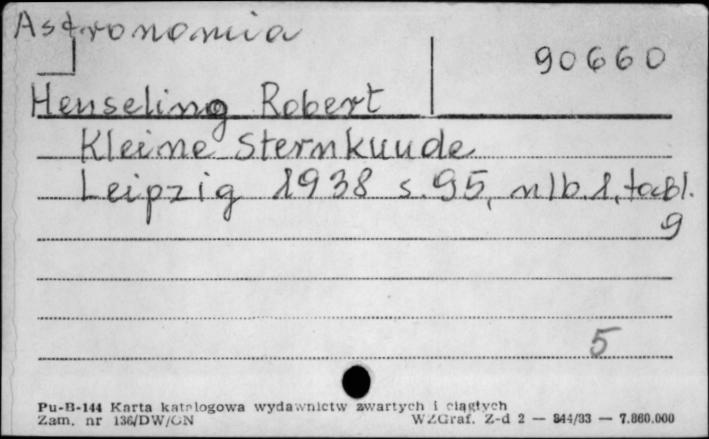 Astronomia
90660
Henseling Robert
Kleine Sternkunde
Leipzig 1938 s. 95, nlb. 1, tabl.
9
5
Pu-B-144 Karta katalogowa wydawnictw zwartych i ciągłych
Zam. nr 136/DW/GN WZGraf. Z-d 2 — 844/83 — 7.860.000